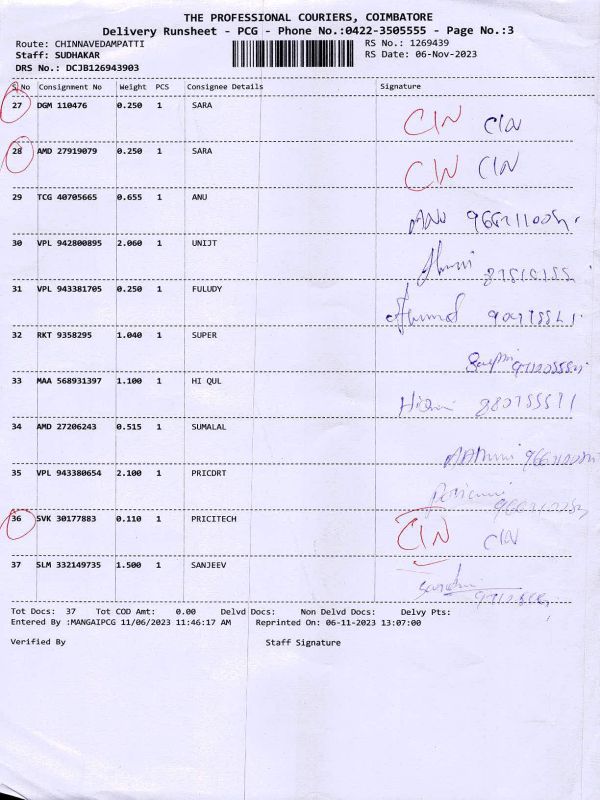 THE PROFESSIONAL COURIERS, COIMBATORE
Delivery Runsheet - PCG - Phone No.:0422-3505555 - Page No.:3
Route: CHINNAVEDAMPATTI RS No.: 1269439
Staff: SUDHAKAR RS Date: 06-Nov-2023
DRS No.: DCJB126943903
S No Consignment No Weight PCS Consignee Details Signature
27 DGM 110476 0.250 1 SARA
CIN CIN
28 AMD 27919079 0.250 1 SARA
CIN CIN
29 TCG 40705665 0.655 1 ANU
ANU
30 VPL 942800895 2.060 1 UNIJT
31 VPL 943381705 0.250 1 FULUDY
32 RKT 9358295 1.040 1 SUPER
33 MAA 568931397 1.100 1 HI QUL
34 AMD 27206243 0.515 1 SUMALAL
35 VPL 943380654 2.100 1 PRICDRT
36 SVK 30177883 0.110 1 PRICITECH
CIN CIN
37 SLM 332149735 1.500 1 SANJEEV
Tot Docs: 37 Tot COD Amt: 0.00 Delvd Docs: Non Delvd Docs: Delvy Pts:
Entered By :MANGAIPCG 11/06/2023 11:46:17 AM Reprinted On: 06-11-2023 13:07:00
Verified By Staff Signature